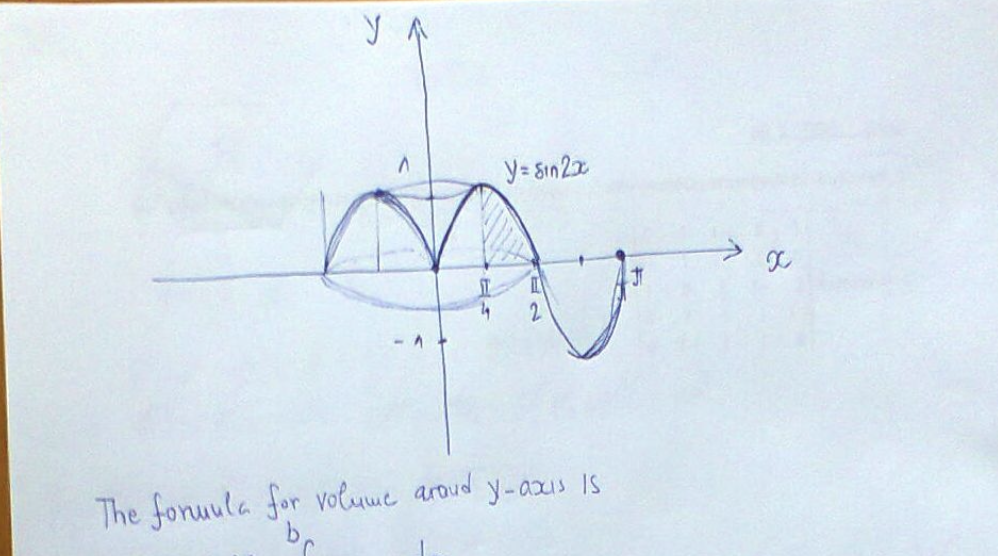 y
1
y = sin2x
x
π/4
π/2
π
-1
The formula for volume aroud y-axis is
b